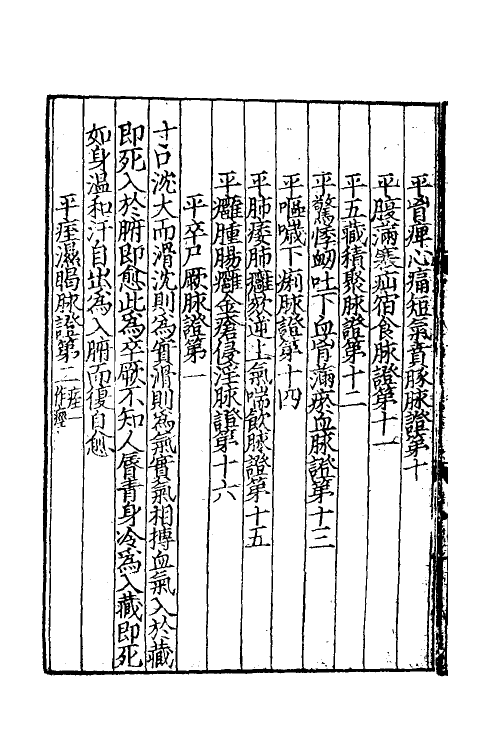 平胷痺心痛短氣賁豚脉證第十
平腹滿寒疝宿食脉證第十一
平五藏積聚脉證第十二
平驚悸衂吐下血胷滿瘀血脉證第十三
平嘔噦下痢脉證第十四
平肺痿肺癰欬逆上氣喘飲脉證第十五
平癰腫腸癰金瘡侵淫脉證第十六
平卒尸厥脉證第一
寸口沈大而滑沈則為實滑則為氣實氣相搏血氣入於藏
即死入於腑即愈此為卒厥不知人脣青身冷為入藏即死
如身溫和汗自出為入腑而復自愈
平痓濕暍脉證第二痓一作痙